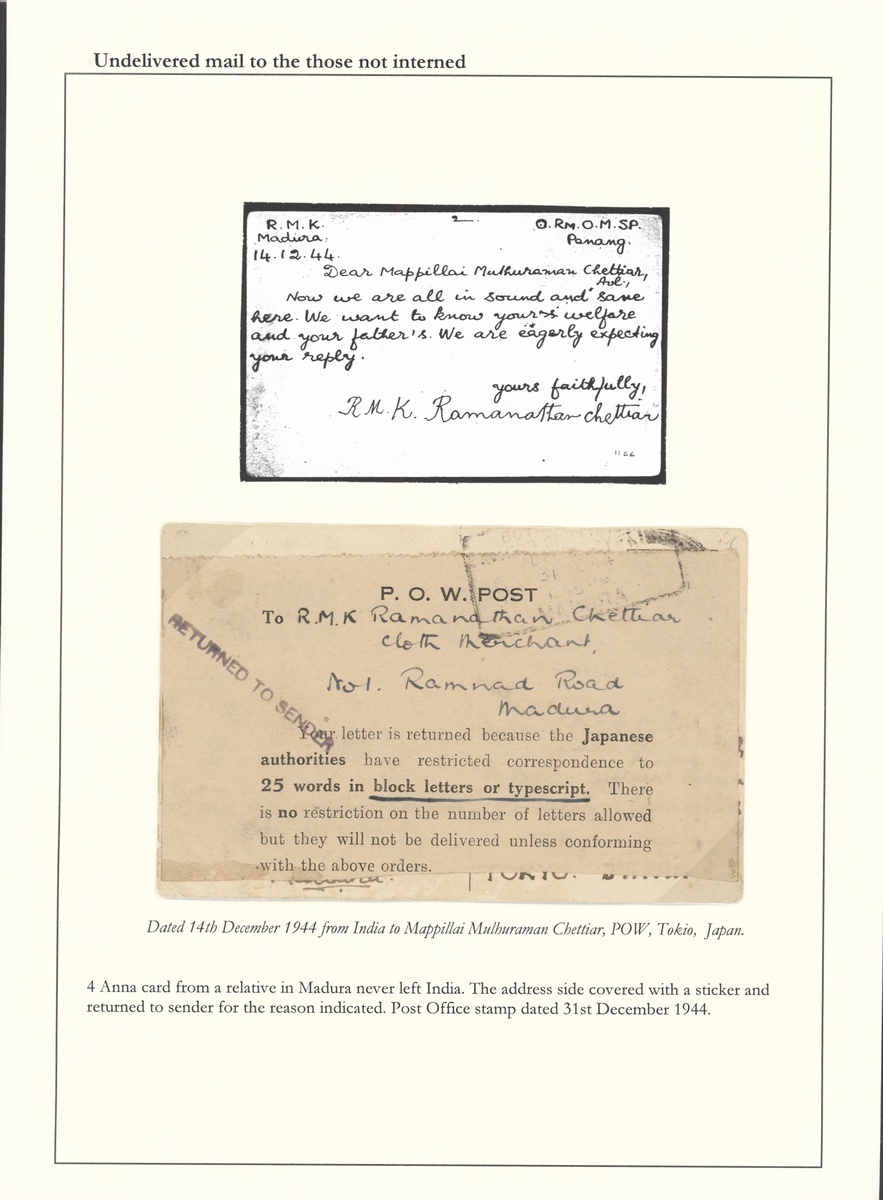 Undelivered mail to the those not interned
R.M.K. 2 O.RM.O.M.SP.
Madura. Penang.
14.12.44.
Dear Mappillai Mulhuraman Chettiar,
Avl.,
Now we are all in sound and sane
here. We want to know your's welfare
and your father's. We are eagerly expecting
your reply.
yours faithfully,
R.M.K. Ramanattan chettiar
1166
31
P. O. W. POST
To R.M.K Ramanathan Chettiar
Cloth Merchant,
No 1. Ramnad Road
Madura
RETURNED TO SENDER
Your letter is returned because the Japanese
authorities have restricted correspondence to
25 words in block letters or typescript. There
is no restriction on the number of letters allowed
but they will not be delivered unless conforming
with the above orders.
Dated 14th December 1944 from India to Mappillai Mulhuraman Chettiar, POW, Tokio, Japan.
4 Anna card from a relative in Madura never left India. The address side covered with a sticker and
returned to sender for the reason indicated. Post Office stamp dated 31st December 1944.